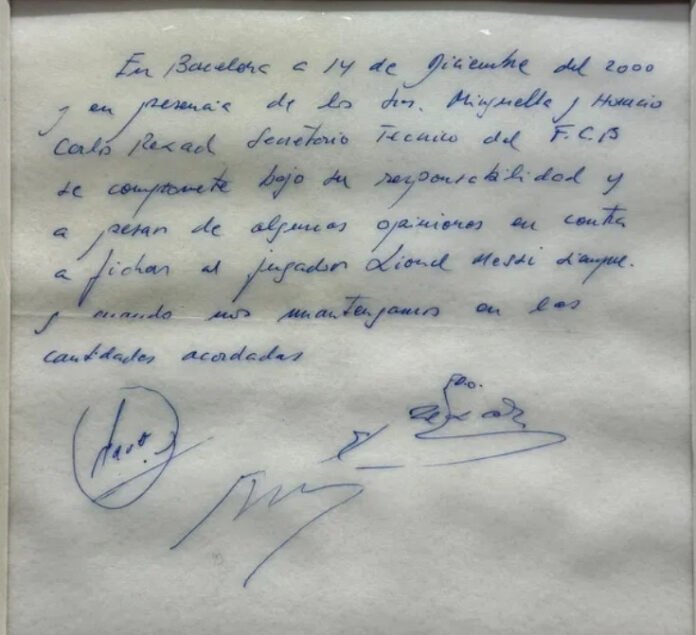 En Barcelona a 14 de Diciembre del 2000
y en presencia de los Srs. Minguella y Horacio
Carlo Rexad Secretario Tecnico del F.C.B
se compromete bajo su responsabilidad y
a pesar de algunas opiniones en contra
a fichar al jugador Lionel Messi siempre.
y cuando nos mantengamos en las
cantidades acordadas
Fdo.